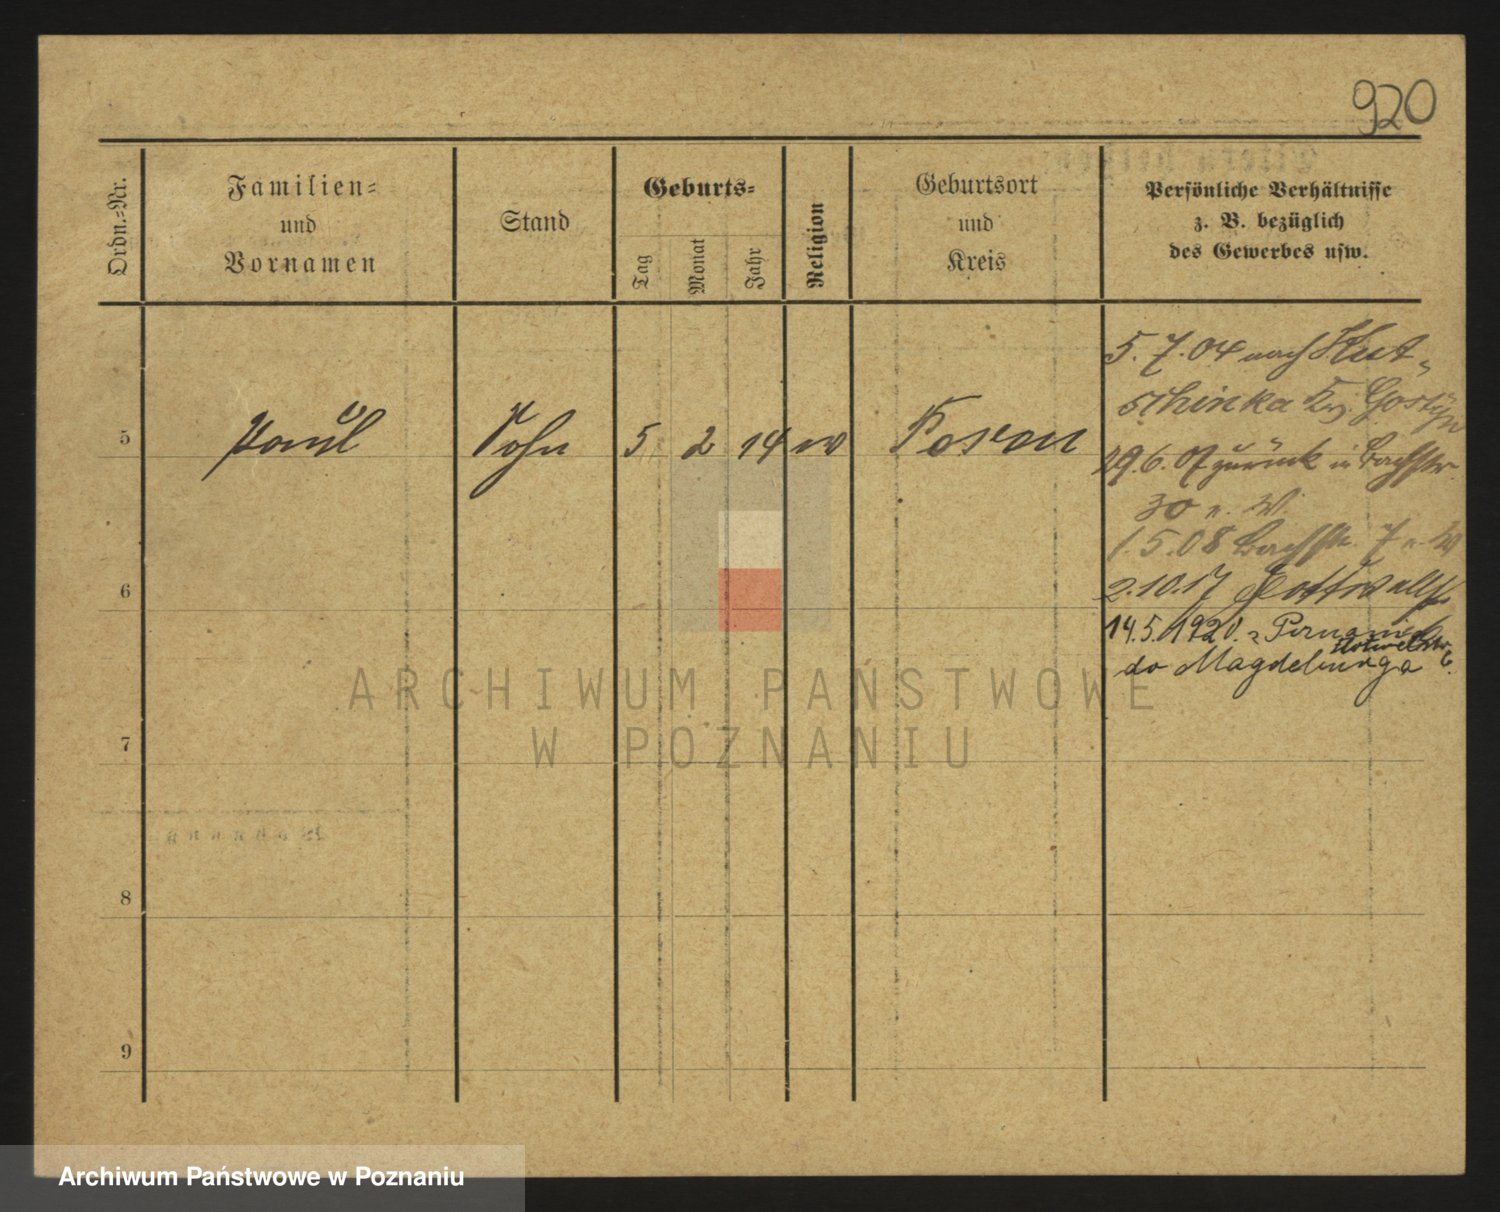 920
Ordn.-Nr.
Familien-
und
Vornamen
Stand
Geburts-
Tag
Monat
Jahr
Religion
Geburtsort
und
Kreis
Persönliche Verhältnisse
z. B. bezüglich
des Gewerbes usw.
5. 7. 04 nach Kut-
schinka Kr. Gostyn
5 Paul Sohn 5 2 14 ev Posen
29.6.07 zurück in Bachstr
30 v. W.
1.5.08 Bachstr. 7 v. W
6
2.10.17
14.5.1920. z Poznania
do Magdeburga
ARCHIWUM PAŃSTWOWE
W POZNANIU
7
8
9
Archiwum Państwowe w Poznaniu